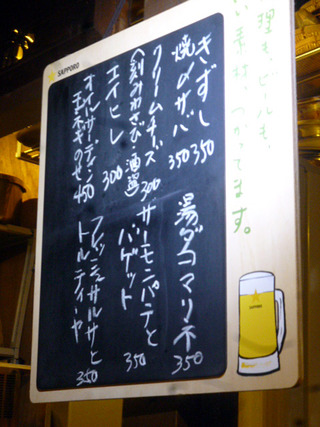 SAPPORO
理もビールも、
い素材、つかってます。
きずし 350
焼〆サバ 350
クリームチーズ
(刻みわさび・酒盗) 300
エイヒレ 300
オイルサーディン
玉ネギのせ 450
湯ダコマリネ 350
サーモンパテと
バゲット 350
フレッシュサルサと
トルティーヤ 350